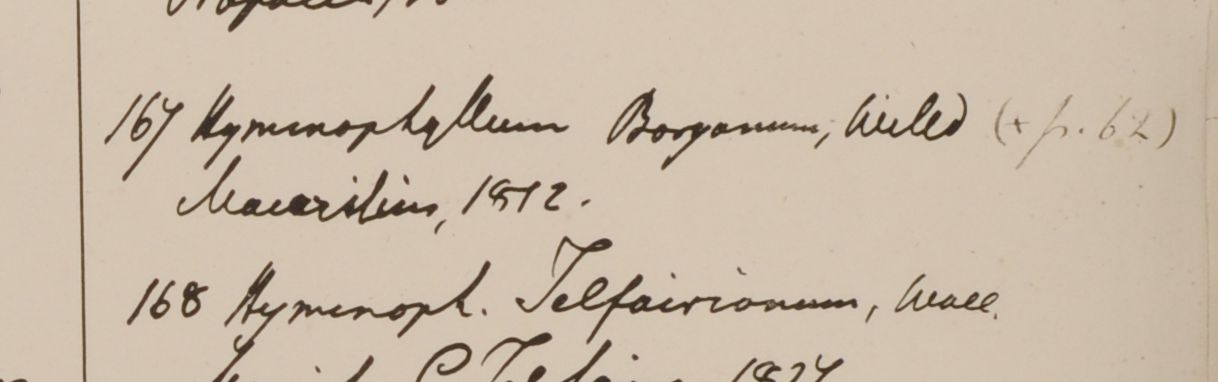 167 Hymenophyllum Boryanum, Willd (+ p. 62)
Mauritius, 1812.
168 Hymenoph. Telfairianum, Wall.
C. Telfair 1827